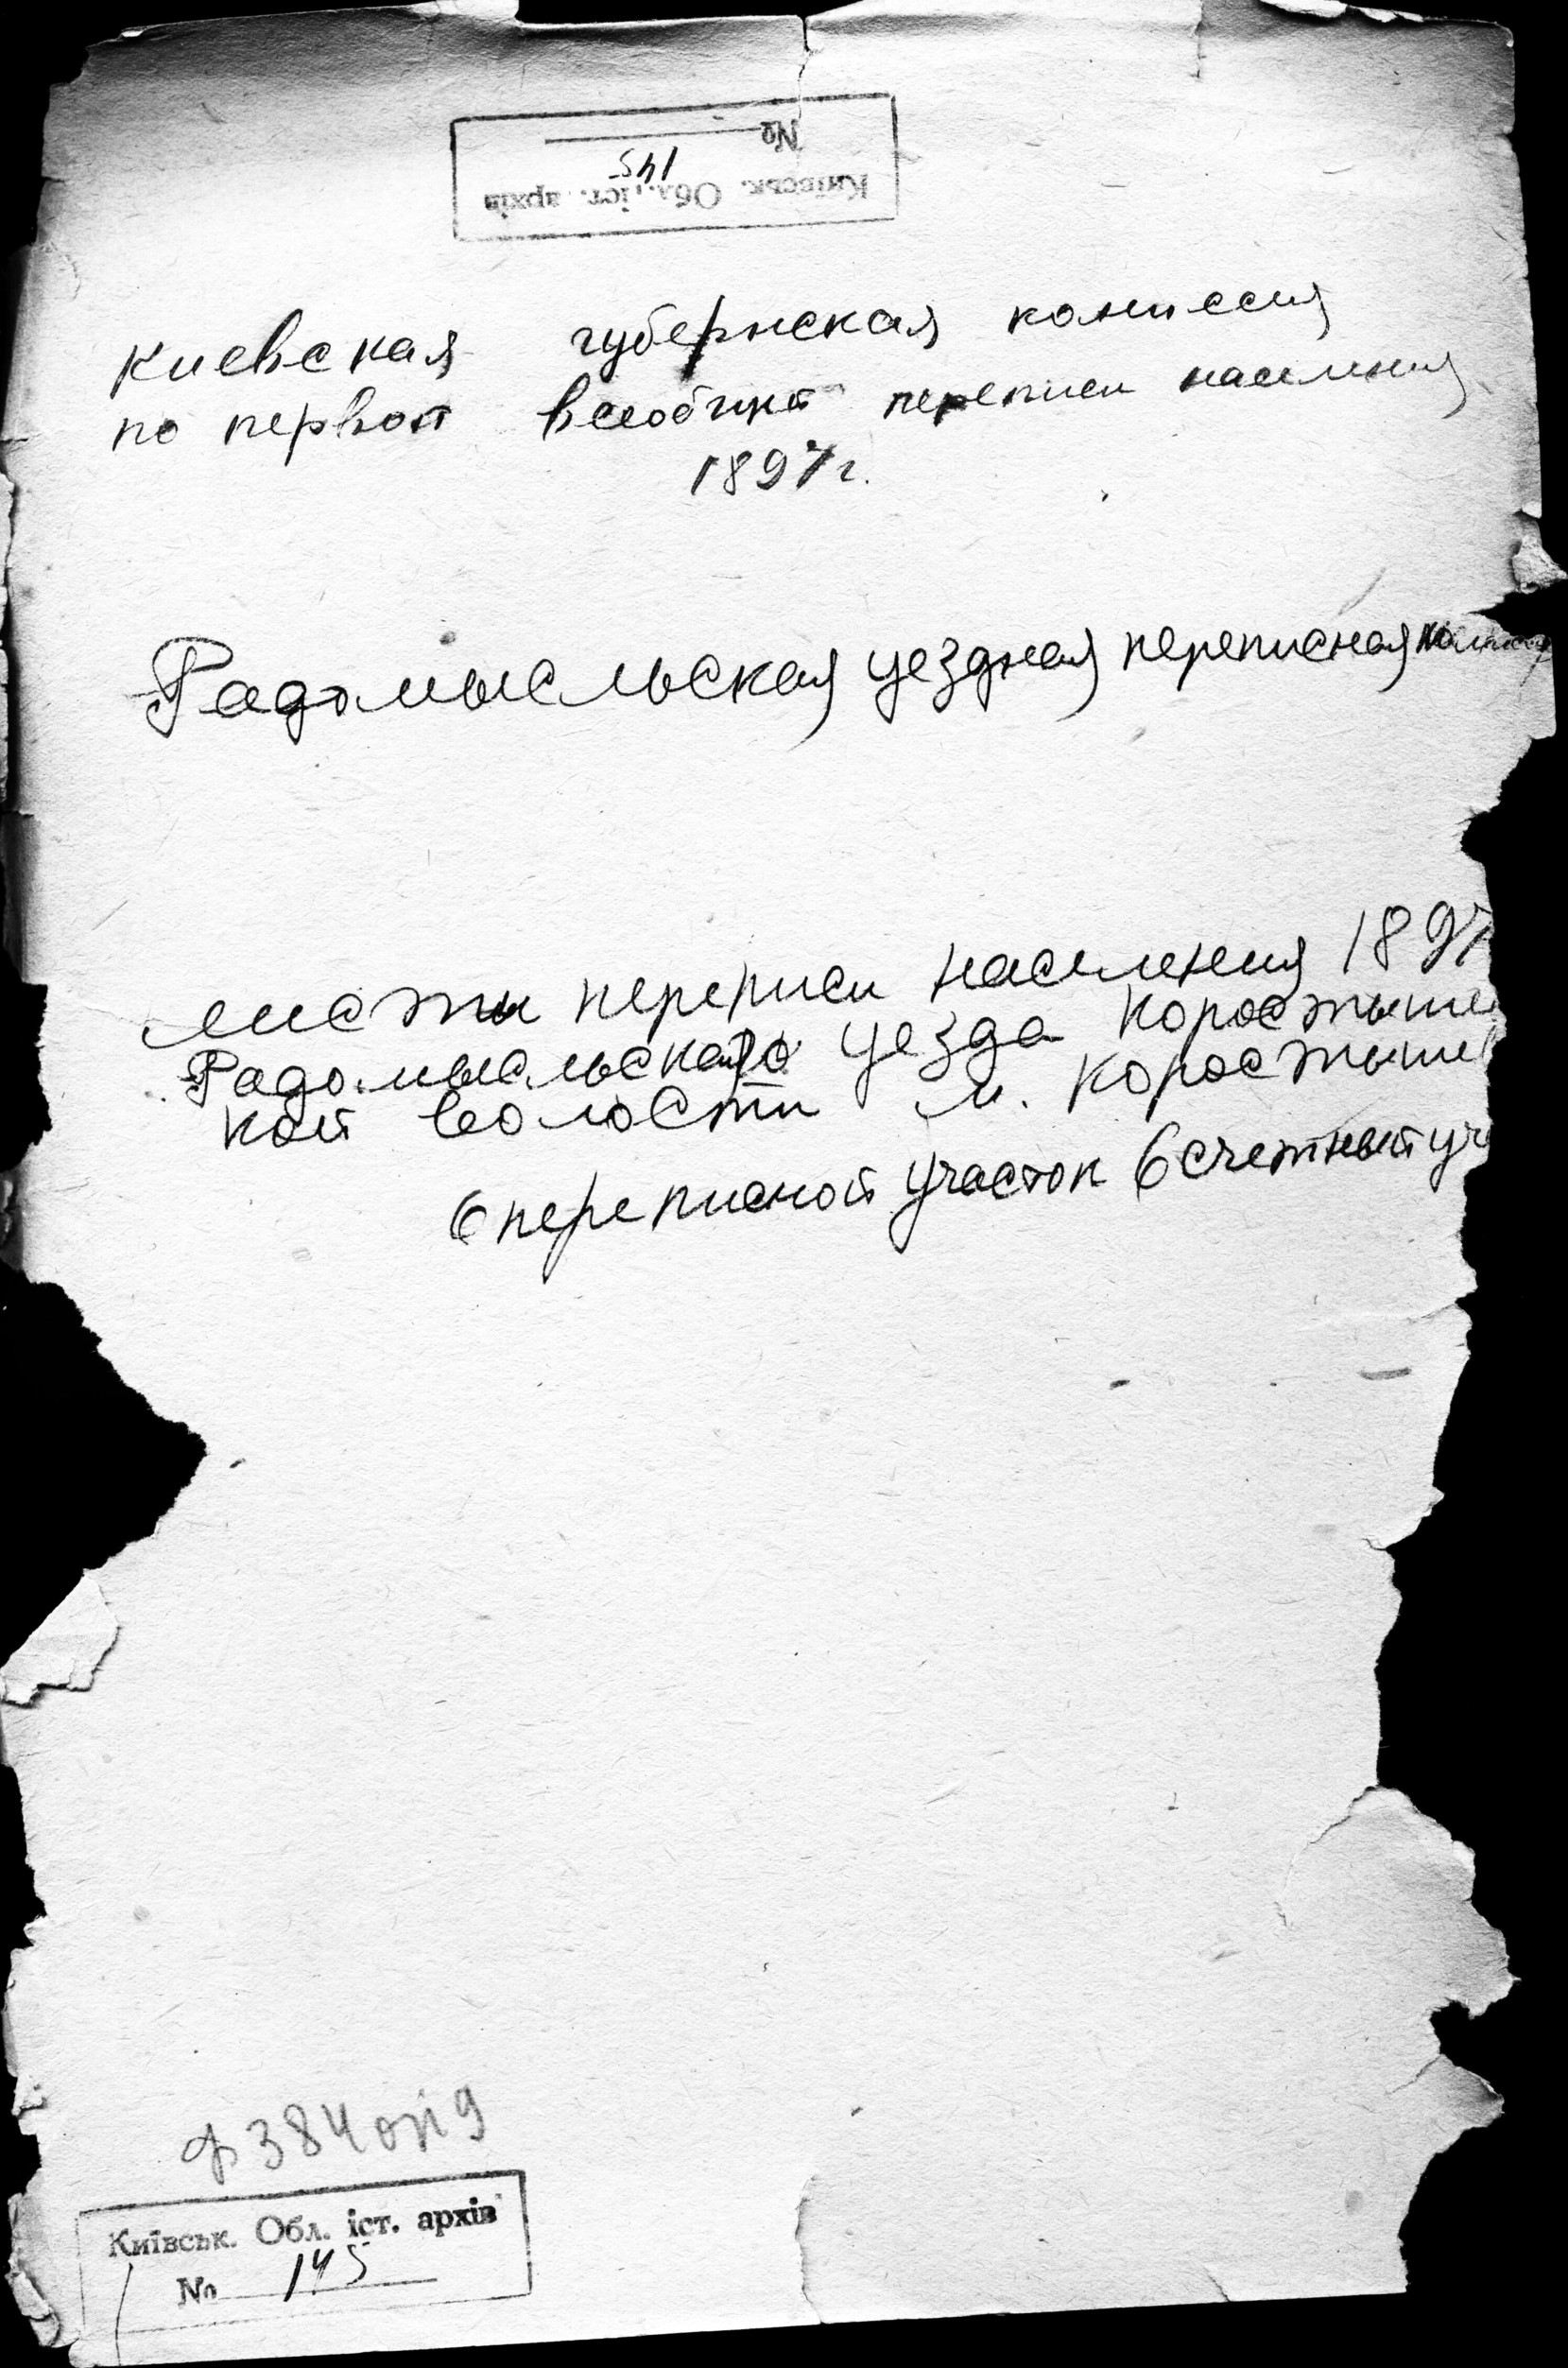 Київськ. Обл. іст. архів
145
№
Киевская губернская комиссия
по первой всеобщей переписи населения
1897 г.
Радомысльская уездная переписная
Листы переписи населения 1897
Радомысльского уезда Коростыше
кой волости м. Коростыше
6 переписной участок 6 счетный уч
ф 384 оп 9
Київськ. Обл. іст. архів
№ 145